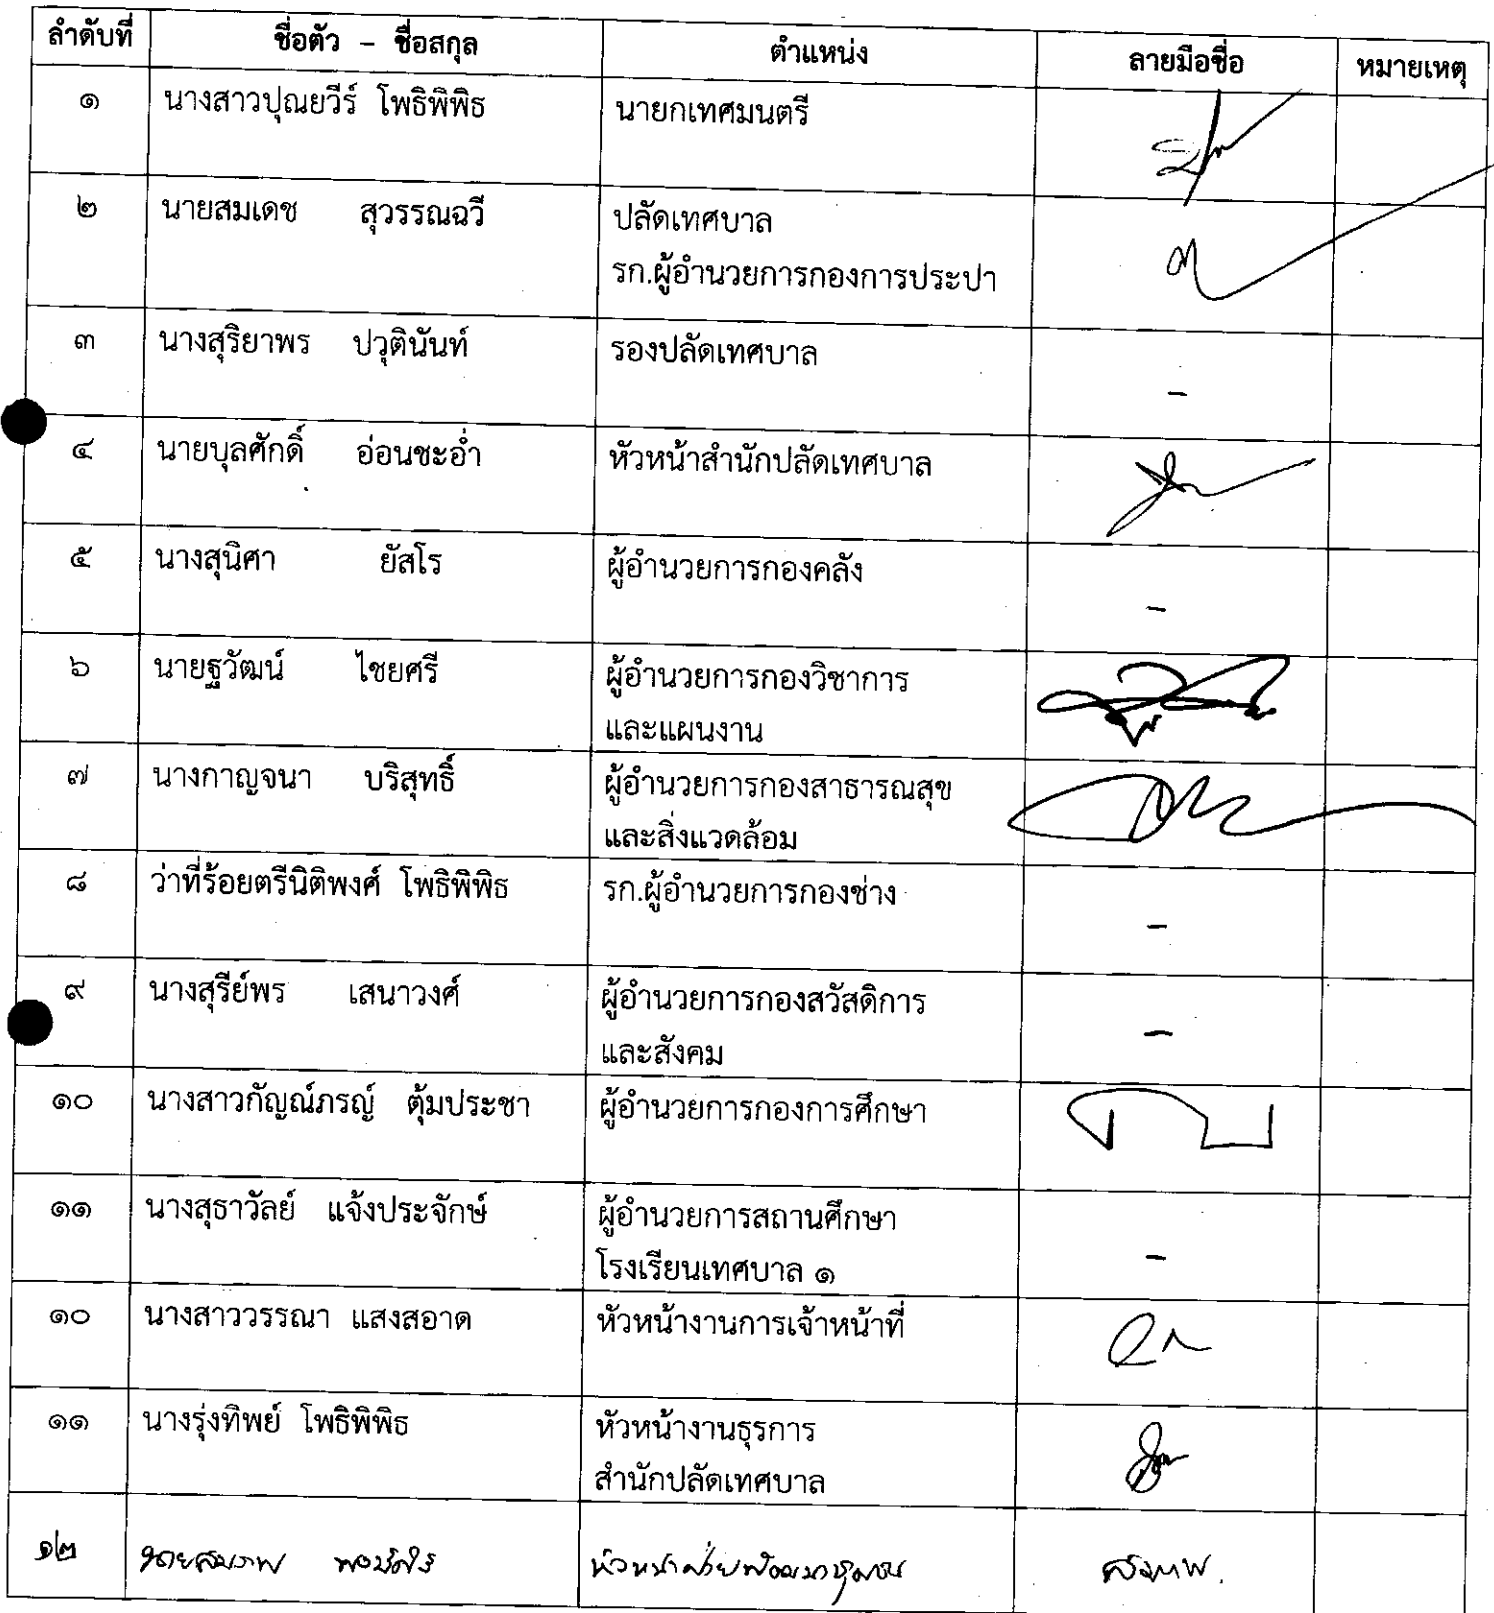 ลำดับที่ ชื่อตัว – ชื่อสกุล ตำแหน่ง ลายมือชื่อ หมายเหตุ
๑ นางสาวปุณยวีร์ โพธิพิพิธ นายกเทศมนตรี
๒ นายสมเดช สุวรรณฉวี ปลัดเทศบาล
รก.ผู้อำนวยการกองการประปา
๓ นางสุริยาพร ปวุตินันท์ รองปลัดเทศบาล -
๔ นายบุลศักดิ์ อ่อนชะอ่ำ หัวหน้าสำนักปลัดเทศบาล
๕ นางสุนิศา ยัสโร ผู้อำนวยการกองคลัง -
๖ นายฐวัฒน์ ไชยศรี ผู้อำนวยการกองวิชาการ
และแผนงาน
๗ นางกาญจนา บริสุทธิ์ ผู้อำนวยการกองสาธารณสุข
และสิ่งแวดล้อม
๘ ว่าที่ร้อยตรีนิติพงศ์ โพธิพิพิธ รก.ผู้อำนวยการกองช่าง -
๙ นางสุรีย์พร เสนาวงศ์ ผู้อำนวยการกองสวัสดิการ
และสังคม -
๑๐ นางสาวกัญณ์ภรญ์ ตุ้มประชา ผู้อำนวยการกองการศึกษา
๑๑ นางสุธาวัลย์ แจ้งประจักษ์ ผู้อำนวยการสถานศึกษา
โรงเรียนเทศบาล ๑ -
๑๐ นางสาววรรณา แสงสอาด หัวหน้างานการเจ้าหน้าที่
๑๑ นางรุ่งทิพย์ โพธิพิพิธ หัวหน้างานธุรการ
สำนักปลัดเทศบาล
๑๒ หัวหน้าฝ่ายพัฒนาชุมชน